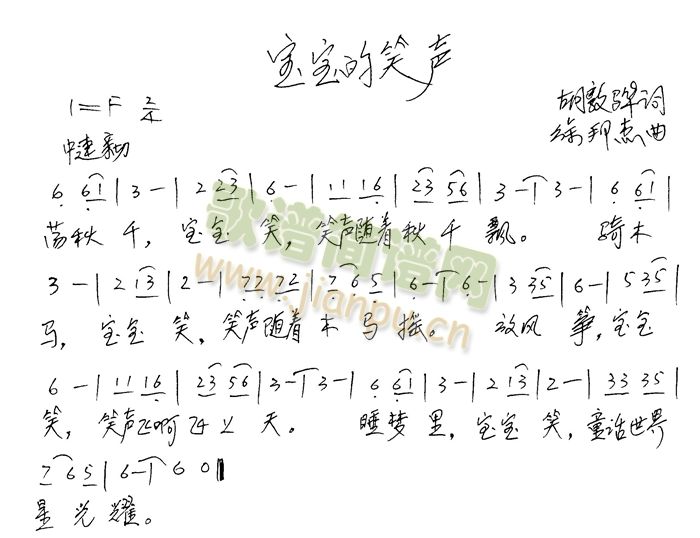 宝宝的笑声
1=F 2/4
胡敦骅词
徐邦杰曲
中速 
6 6 1 | 3 - | 2 2 3 | 6 - | 1 1 1 6 | 2 3 5 6 | 3 - | 3 - | 6 6 1 |
荡秋千,宝宝笑,笑声随着秋千飘。骑木
3 - | 2 1 3 | 2 - | 7 7 7 2 | 7 6 5 | 6 - | 6 - | 3 3 5 | 6 - | 5 3 5 |
马,宝宝笑,笑声随着木马摇。放风筝,宝宝
6 - | 1 1 1 6 | 2 3 5 6 | 3 - | 3 - | 6 6 1 | 3 - | 2 1 3 | 2 - | 3 3 3 5 |
笑,笑声飞啊飞上天。睡梦里,宝宝笑,童话世界
7 6 5 | 6 - | 6 0 |
星光耀。
歌谱简谱网
www.jianpu.cn